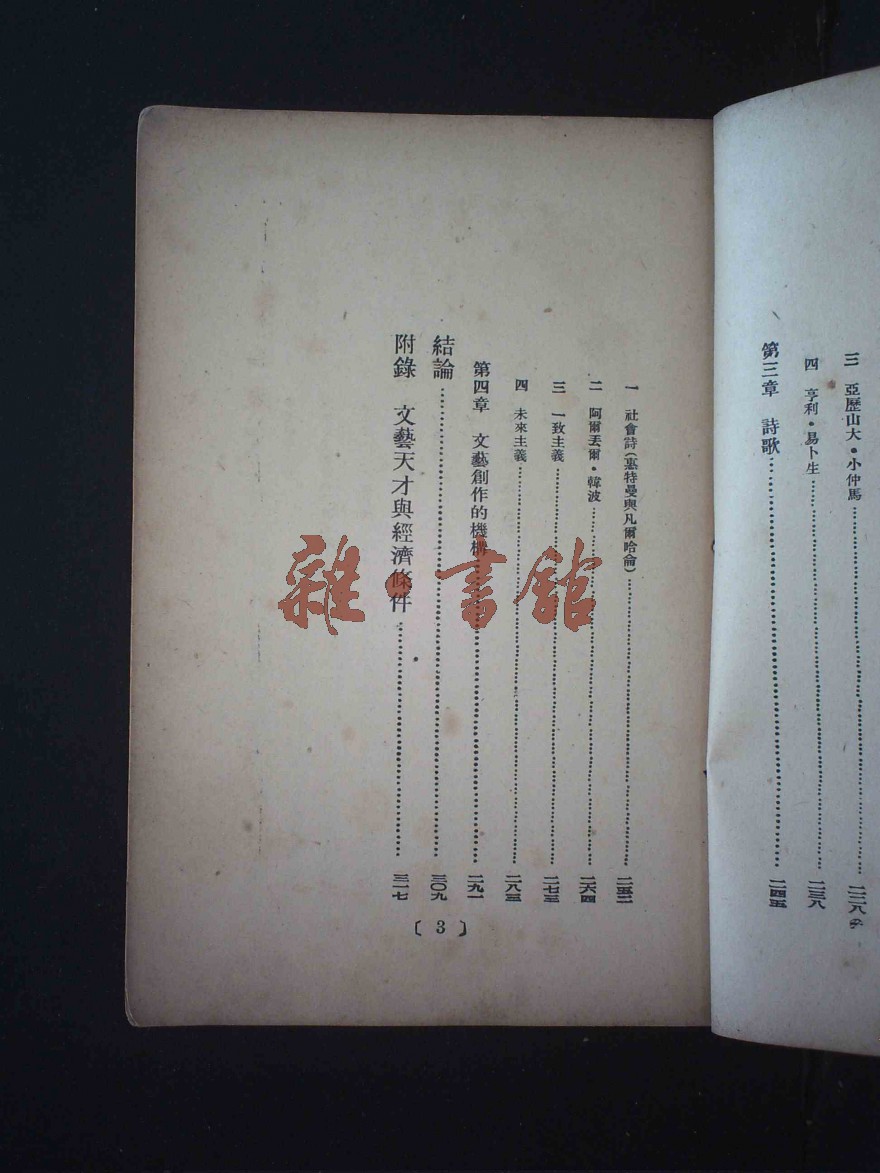 三　亞歷山大・小仲馬……二二八
四　亨利・易卜生……二三八
第三章　詩歌……二四五
一　社會詩(惠特曼與凡爾哈侖)……二五二
二　阿爾丟爾・韓波……二六四
三　一致主義……二七三
四　未來主義……二八三
第四章　文藝創作的機構……二九一
結論……三〇九
附錄　文藝天才與經濟條件……三一七
〔3〕
雜・書館